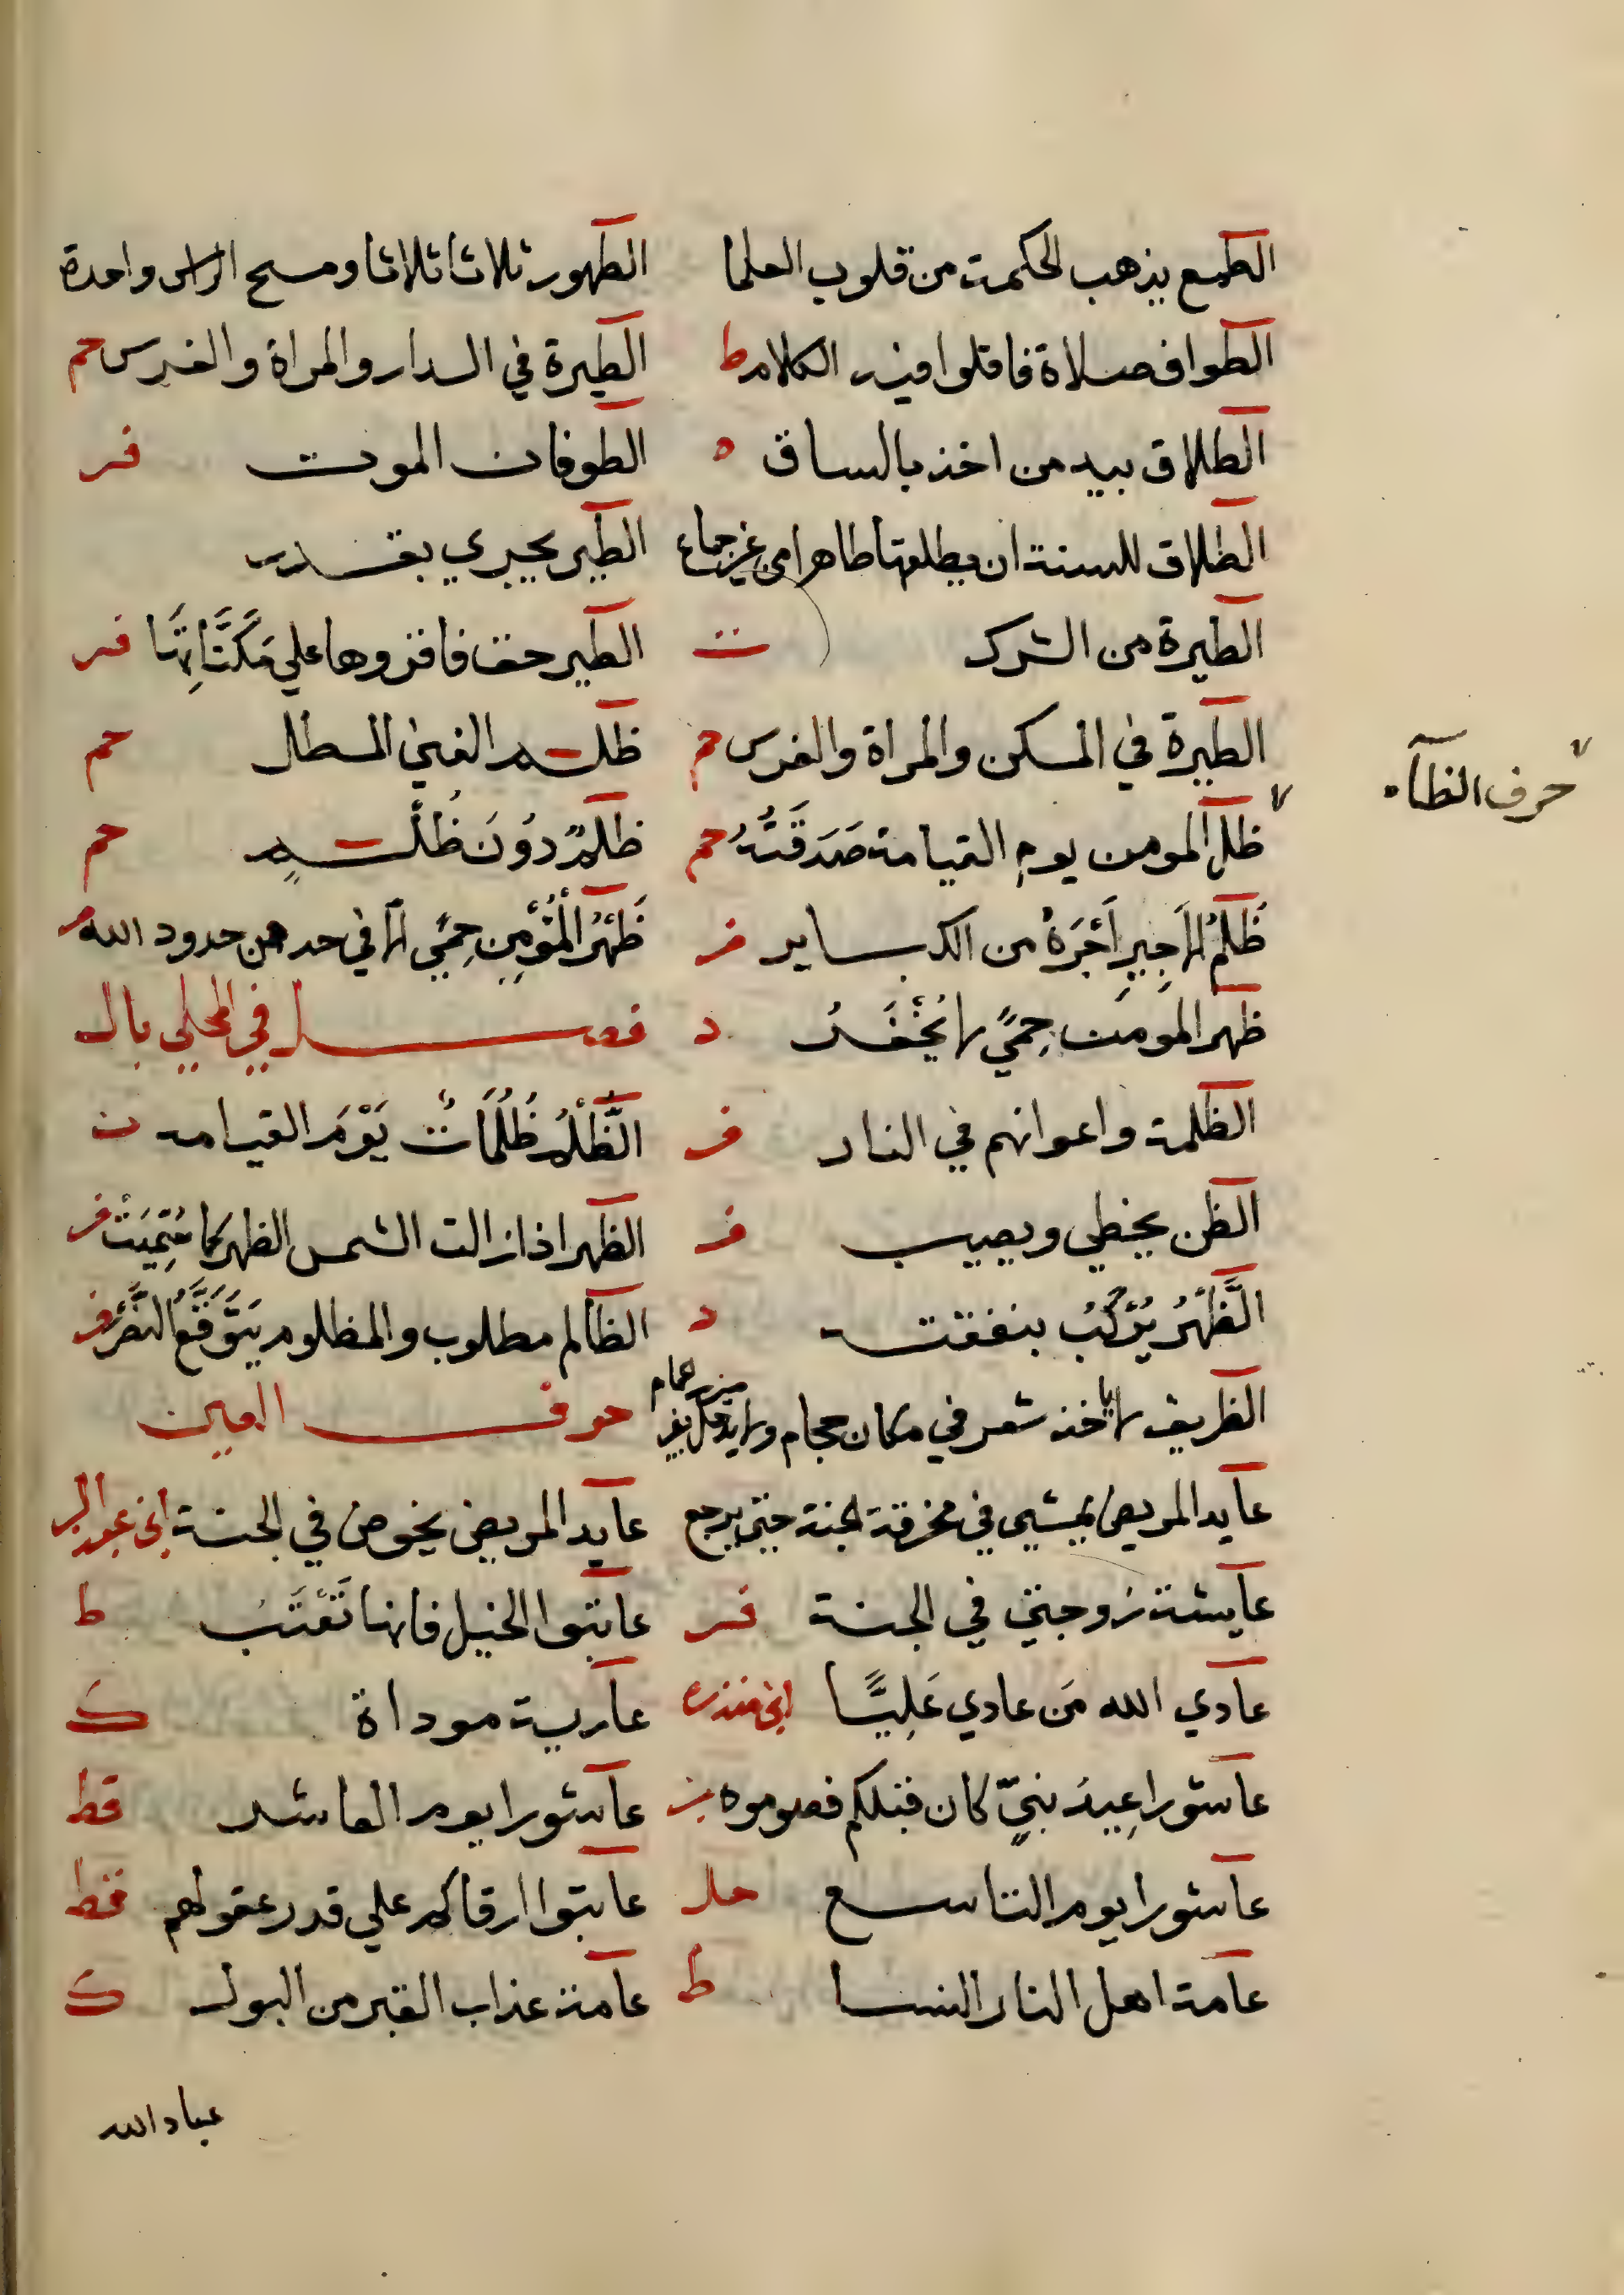 الطمع يذهب الحكمة من قلوب العلما
الطهور ثلاثا ثلاثا ومسح الراس واحدة
الطواف صلاة فاقلوا فيه الكلام ط
الطيرة في الدار والمراة والفرس حم
الطلاق بيد من اخذ بالساق ه
الطوفان الموت فر
الطلاق للسنة ان يطلقها طاهرا من غير جماع
الطير يجري بقدر
الطيرة من الشرك ت
الطير حق فاقروها علي مَكَنَّاتِهَا فر
الطيرة في المسكن والمراة والفرس حم
ظلم الغني المطال حم
حرف الظآء
ظل المومن يوم القيامة صَدَقَتُهُ حم
ظلمٌ دُونَ ظُلْمٍ حم
ظُلْمُ الاَجِيرِ اَجْرَهُ من الكباير فر
ظَهْرُ الْمُؤْمِنِ حِمًي الا في حد من حدود الله
ظهر المومن حِمًي لا يُخْفَرُ د
فصل في المحلي بال
الظلمة واعوانهم في النار فر
الظُّلْمُ ظُلُمَاتٌ يَوْمَ القيامه ت
الظن يخطي ويصيب فر
الظهر اذا زالت الشمس الظهر كما سُمِّيَتْ فر
الظَّهْرُ يُرْكَبُ بنفقته د
الظالم مطلوب والمظلوم يَتَوَقَّعُ النَّصْرَ فر
الظريف لا ياخذ شعر في مكان حجام ولا يدخل بغير ميزر حمام
حرف العين
عايد المريض يمشي في مخرفة الجنة حتي يرجع
عايد المريض يخوض في الجنة ابن عبد البر
عايشة زوجتي في الجنة فر
عاتبوا الخيل فانها تُعْتَبُ ط
عادي الله مَن عادي عَلِيًّا ابن منده
عارية موداة ك
عاشورا عِيدُ نبيٍّ كان قبلكم فصوموه بز
عاشورا يوم العاشر قط
عاشورا يوم التاسع حل
عاتبوا ارقاكم علي قدر عقولهم قط
عامة اهل النار النسا ط
عامة عذاب القبر من البول ك
عباد الله